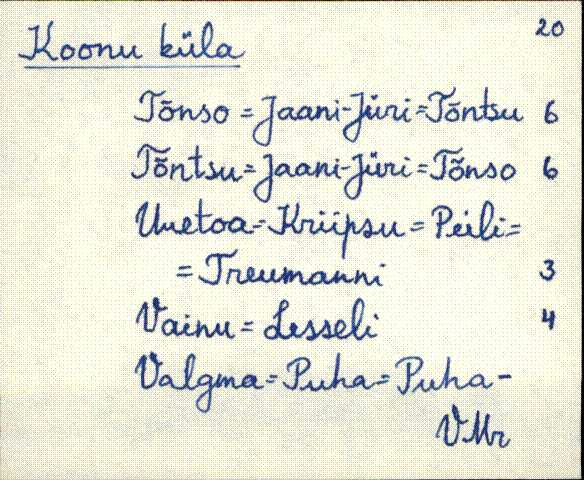 20
Koonu küla
Tõnso = Jaani-Jüri = Tõntsu 6
Tõntsu = Jaani-Jüri = Tõnso 6
Uuetoa = Kriipsu = Peili =
= Treumanni 3
Vainu = Lesseli 4
Valgma = Puha = Puha-
VMr